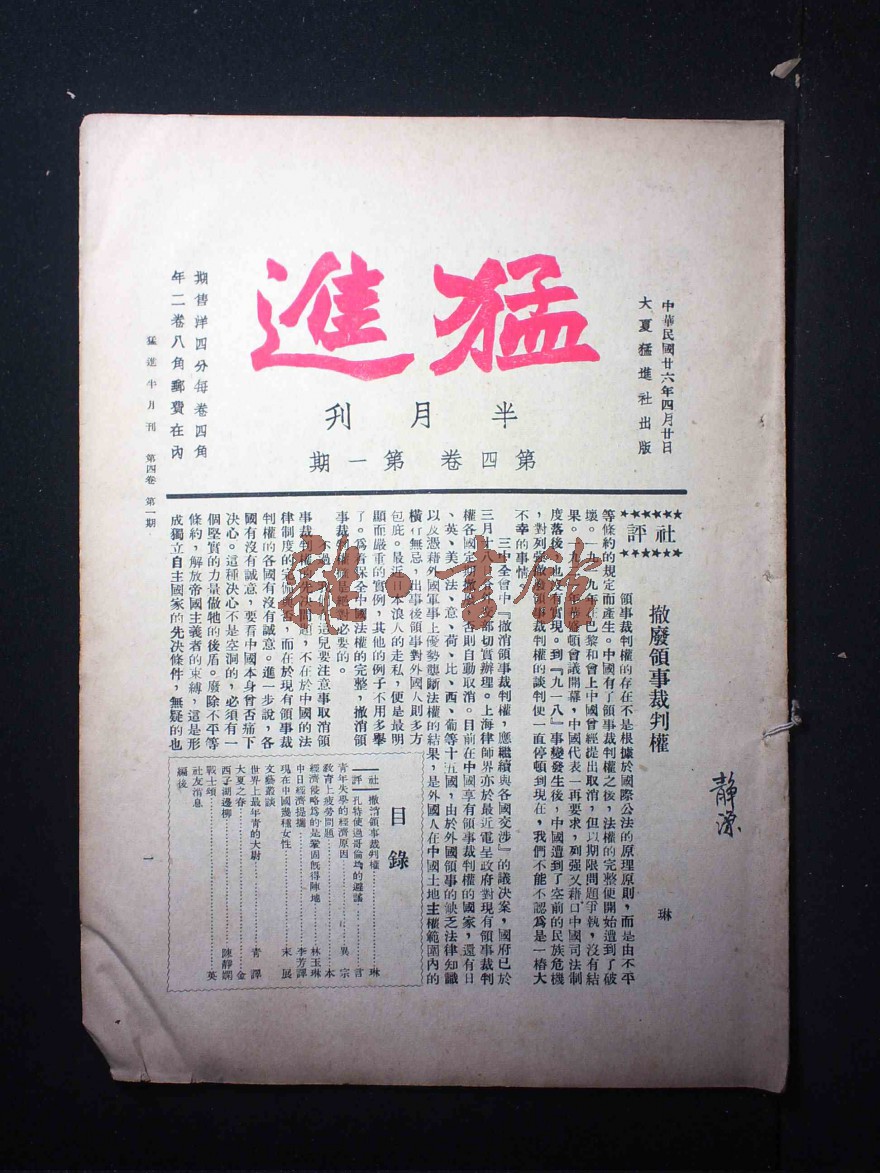 猛進
半月刊
第四卷 第一期
中華民國廿六年四月廿日
大夏猛進社出版
期售洋四分每卷四角
年二卷八角郵費在內
猛進半月刊 第四卷 第一期
社評
撤廢領事裁判權
琳
領事裁判權的存在不是根據於國際公法的原理原則,而是由不平
等條約的規定而產生。中國有了領事裁判權之後,法權的完整便開始遭到了破
壞。一九一九年在巴黎和會上中國曾經提出取消,但以期限問題爭執,沒有結
果。一九二一年華盛頓會議開幕,中國代表一再要求,列强又藉口中國司法制
度落後,也沒有實現。到『九一八』事變發生後,中國遭到了空前的民族危機
,對列强撤消領事裁判權的談判便一直停頓到現在,我們不能不認爲是一樁大
不幸的事情。
三中全會中『撤消領事裁判權,應繼續與各國交涉』的議決案,國府已於
三月十八日 部切實辦理。上海律師界亦於最近電呈政府對現有領事裁判
權各國定期撤 否則自動取消。目前在中國享有領事裁判權的國家,還有日
、英、美、法、意、荷、比、西、葡等十五國,由於外國領事的缺乏法律知識
以及憑藉外國軍事上優勢壟斷法權的結果,是外國人在中國土地主權範圍內的
橫行無忌,出事後領事對外國人則多方
包庇。最近日本浪人的走私,便是最明
顯而嚴重的實例,其他的例子不用多舉
了。爲着保全中國法權的完整,撤消領
事裁判權 是絕對必要的。
不過 這兒要注意事取消領
事裁判權的先決問題,不在於中國的法
律制度的完備與否,而在於現有領事裁
判權的各國有沒有誠意。進一步說,各
國有沒有誠意,要看中國本身曾否痛下
決心。這種決心不是空洞的,必須有一
個堅實的力量做牠的後盾。廢除不平等
條約,解放帝國主義者的束縛,這是形
成獨立自主國家的先決條件,無疑的也
目錄
社 撤消領事裁判權 琳
評 孔特使過哥倫坡的避謠 言
青年失學的經濟原因 異宗
敎育上疲勞問題 本
經濟侵略爲的是鞏固既得陣地 林玉琳
中日經濟提攜 李芳譯
現在中國幾種女性 宋展
文藝叢談
世界上最年青的大尉 青譯
大夏之春 金
西子湖邊柳 陳靜嫻
戰士頌 英
社友消息
編後
一
靜深
龍·書館